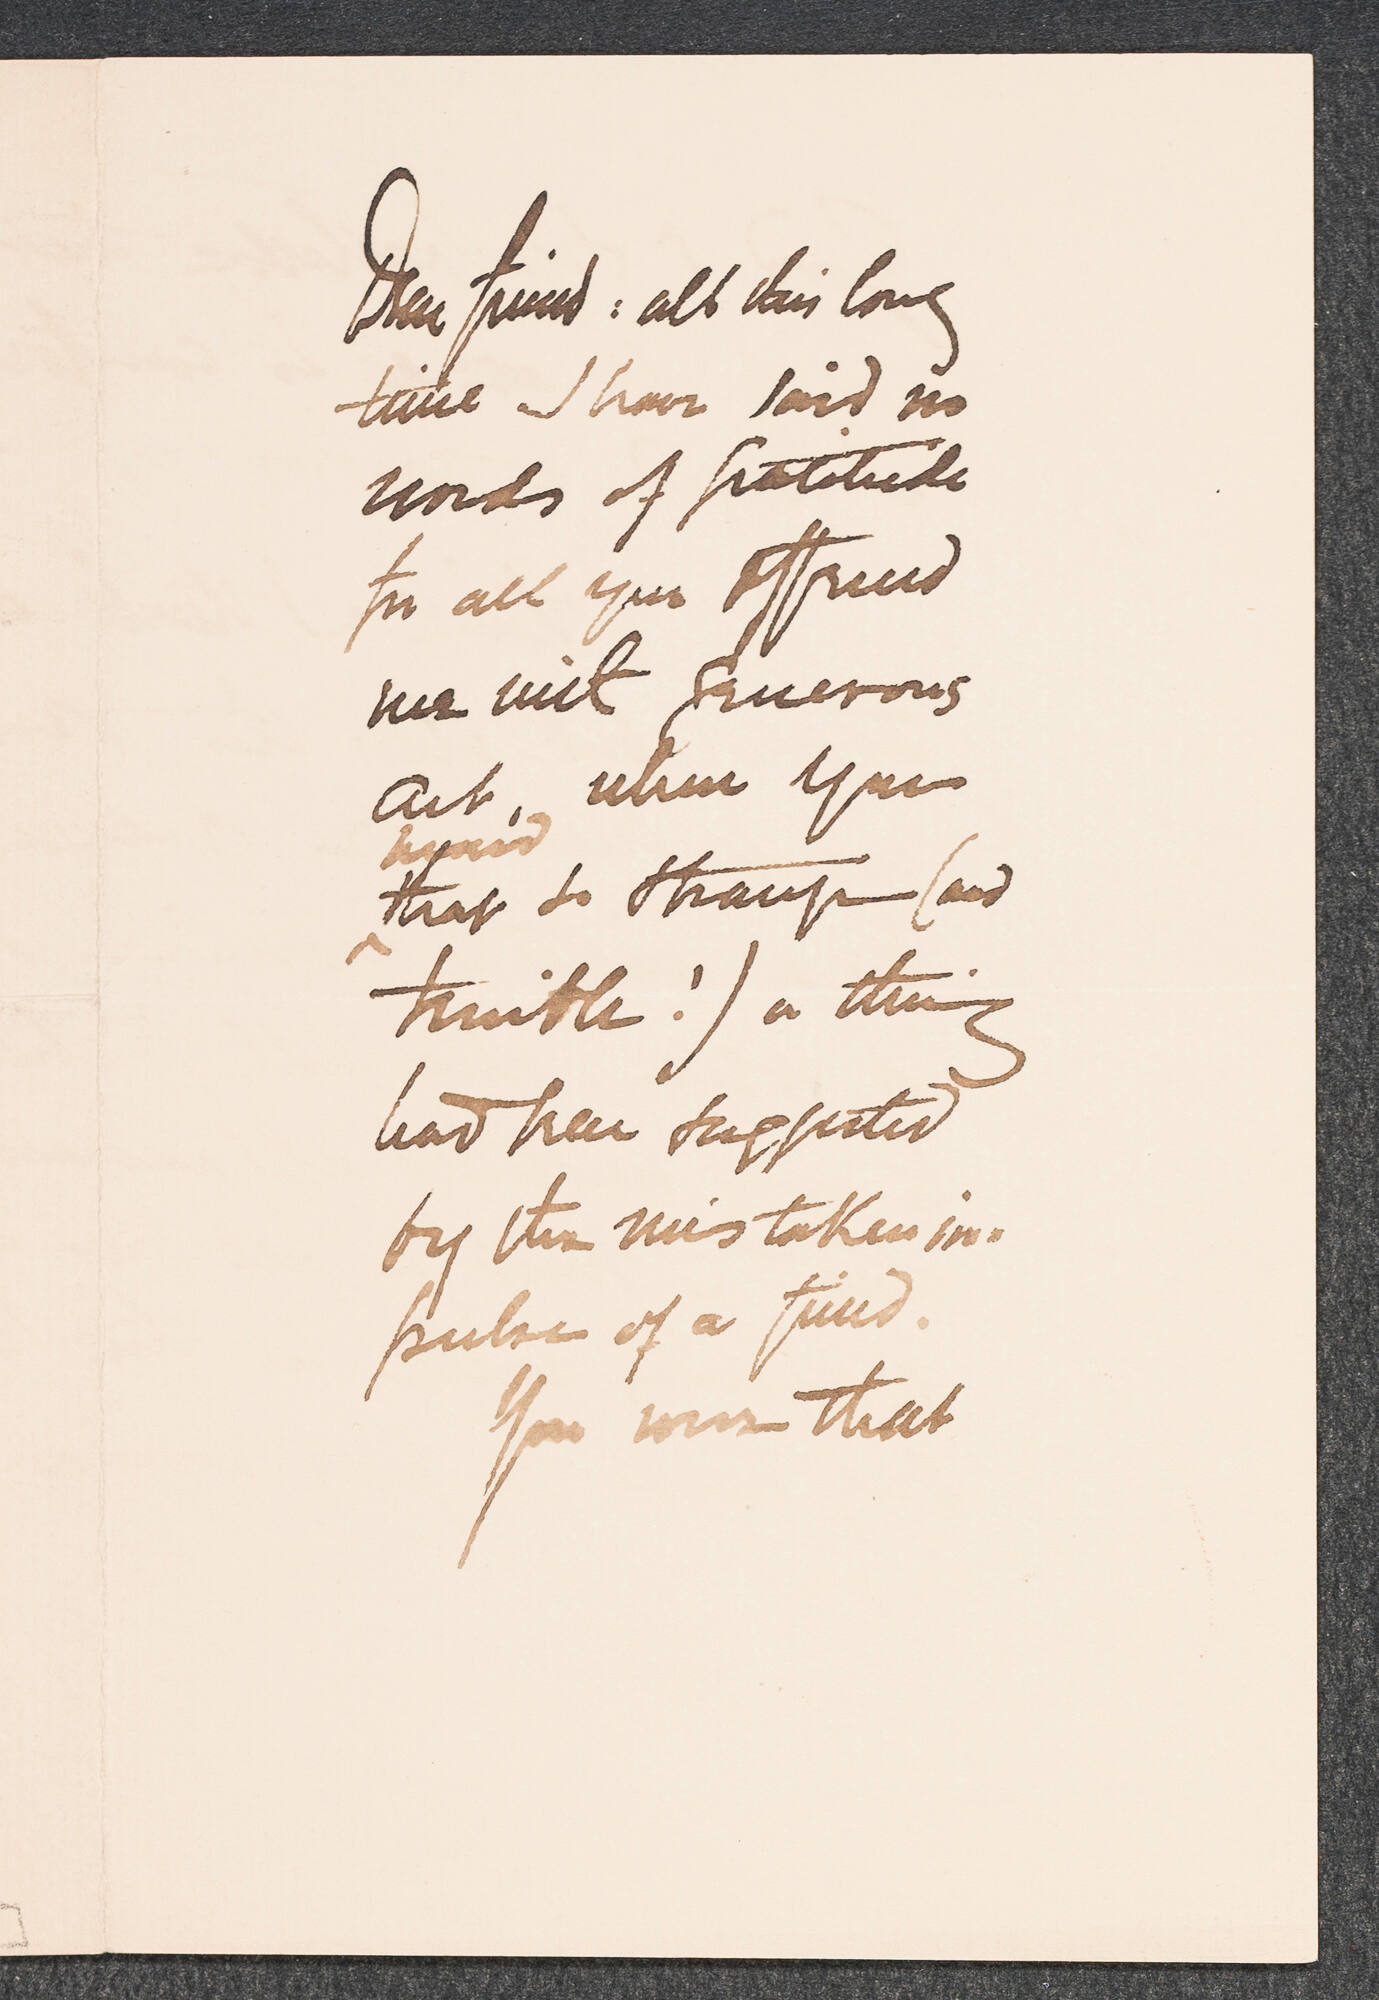 Dear friend: all this long
time I have said no
words of gratitude
for all you offered
me with generous
act, when you
that so strange (and
terrible!) a thing
had been suggested
by the mistaken im-
pulse of a friend.
You were that